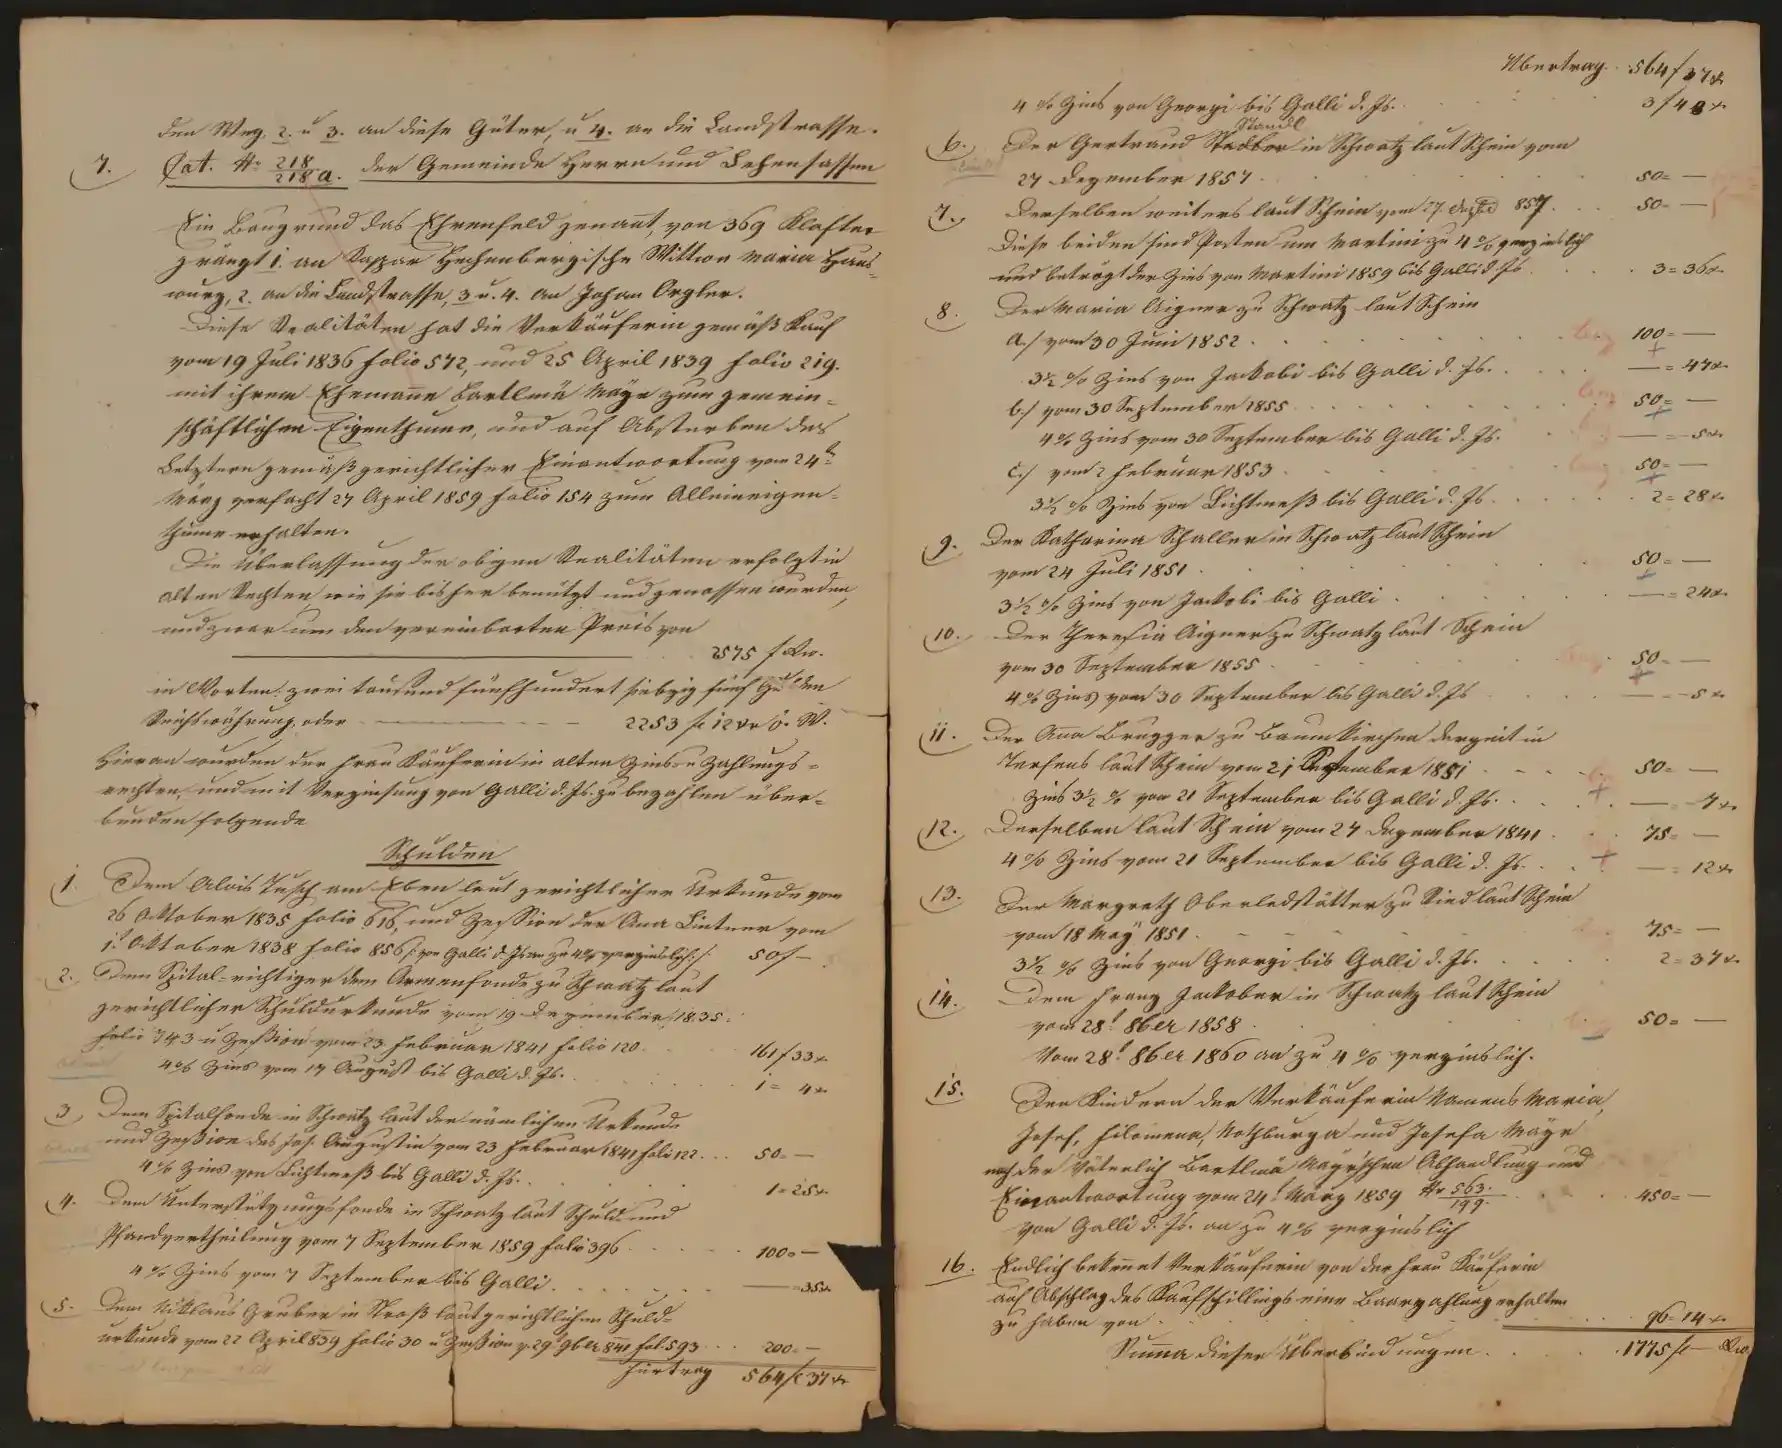 den Weg. 2. u 3. an diese Güter, u 4. an die Landstrasse.
7. Cat. No 218/218 a. der Gemeinde Herrn und Lehensassen
Ein Baugrund das Ehrenfeld genant, von 369 Klafter
gränzt 1. an Kaspar Hechenbergische Wittwe Maria Haus-
wurz, 2. an die Landstrasse, 3 u. 4. an Johan Orgler.
Diese Realitäten hat die Verkäuferin gemäß Kauf
vom 19 Juli 1836 folio 572, und 25 April 1839 folio 219.
mit ihrem Ehemanne Bartlmä Mayr zum gemein-
schäftlichen Eigenthume, und auf Absterben des
Letztern gemäß gerichtlicher Einantwortung vom 24ten
März verfacht 27 April 1859 folio 154 zum Alleineigen-
thume erhalten.
Die Überlassung der obigen Realitäten erfolgt in
alten Rechten wie sie bisher benützt und genossen wurden,
und zwar um den vereinbarten Preis von
2575 f Rw.
in Worten: zwei tausend fünfhundert siebzig fünf Gulden
Reichswährung, oder 2253 f 12 xr ö. W.
Hieran wurden der Frau Käuferin in alten Zins- u Zahlungs-
rechten, und mit Verzinsung von Galli d. Js. zu bezahlen über-
bunden folgende
Schulden
1. Dem Alois Tusch am Eben laut gerichtlicher Urkunde vom
26 Oktober 1835 folio 616, und Zession der Ana Lintner vom
1t Oktober 1838 folio 856 /: von Galli d. Js an zu 4% verzinslich :/ 50 f —
2. Dem Spital- richtiger dem Armenfonde zu Schwatz laut
gerichtlicher Schuldurkunde vom 19 Dezember 1835.
folio 743 u Zession vom 23 Februar 1841 folio 120. 161 f 33 xr
4% Zins vom 17 August bis Galli d. Js. 1 = 4 xr
3. Dem Spitalfonde in Schwatz laut der nämlichen Urkunde
und Zession des Jos. Augustin vom 23 Februar 1841 folio 122. 50 = —
4% Zins von Lichtmeß bis Galli d. Js. 1 = 25 xr
4. Dem Unterstützungsfonde in Schwatz laut Schuld- und
Pfandvertheilung vom 7 September 1859 folio 396 100 = —
4% Zins vom 7 September bis Galli. — = 35 xr
5. Dem Niklaus Gruber in Straß laut gerichtlicher Schuld-
urkunde vom 22 April 839 folio 30 u Zession v. 29t 9ber 841 fol: 593 200 = —
Fürtrag 564 f 37 xr
Übertrag 564 f 37 xr
4% Zins von Georgi bis Galli d. Js. 3 f 48 xr
Standl
6. Der Gertraud Stadler in Schwatz laut Schein vom
27 Dezember 1857 50 = —
7. Derselben weiters laut Schein vom 27. Dezbr 857 50 = —
Diese beiden sind Posten um Martini zu 4% verzinslich
und beträgt der Zins von Martini 1859 bis Galli d. Js 3 = 36 xr
8. Der Maria Aigner zu Schwatz laut Schein
a./ vom 30 Juni 1852 100 = —
3½ % Zins von Jackobi bis Galli d. Js. — = 47 xr
b./ vom 30 September 1855 50 = —
4% Zins vom 30 September bis Galli d. Js. — = 5 xr
c./ vom 2 Februar 1853 50 = —
3½ % Zins von Lichtmeß bis Galli d. Js 2 = 28 xr
9. Der Katharina Schaller in Schwatz laut Schein
vom 24 Juli 1851 50 = —
3½ % Zins von Jackobi bis Galli — = 24 xr
10. Der Theresia Aigner zu Schwatz laut Schein
vom 30 September 1855 50 = —
4% Zins vom 30 September bis Galli d. Js — = 5 xr
11. Der Ana Brugger zu Baumkirchen derzeit in
Terfens laut Schein vom 21 September 1851 50 = —
Zins 3½ % vom 21 September bis Galli d. Js. — = 7 xr
12. Derselben laut Schein vom 27 Dezember 1841 75 = —
4% Zins vom 21 September bis Galli d. Js. — = 12 xr
13. Der Margreth Oberladstätter zu Ried laut Schein
vom 18 May 1851 75 = —
3½ % Zins von Georgi bis Galli d. Js. 2 = 37 xr
14. Dem Franz Jackober in Schwatz laut Schein
vom 28t 8ber 1858 50 = —
Vom 28t 8ber 1860 an zu 4% verzinslich.
15. Den Kindern der Verkäuferin Namens Maria,
Josef, Filomena, Nothburga und Josefa Mayr
nach der Väterlich Bartlmä Mayr'schen Abhandlung und
Einantwortung vom 24t März 1859 No 563/199. 450 = —
von Galli d. Js. an zu 4% verzinslich
16. Endlich bekennt Verkäuferin von der Frau Käuferin
auf Abschlag des Kaufschillings eine Baarzahlung erhalten
zu haben von 96 = 14 xr
Summa dieser Überbindungen 1775 f — Rw